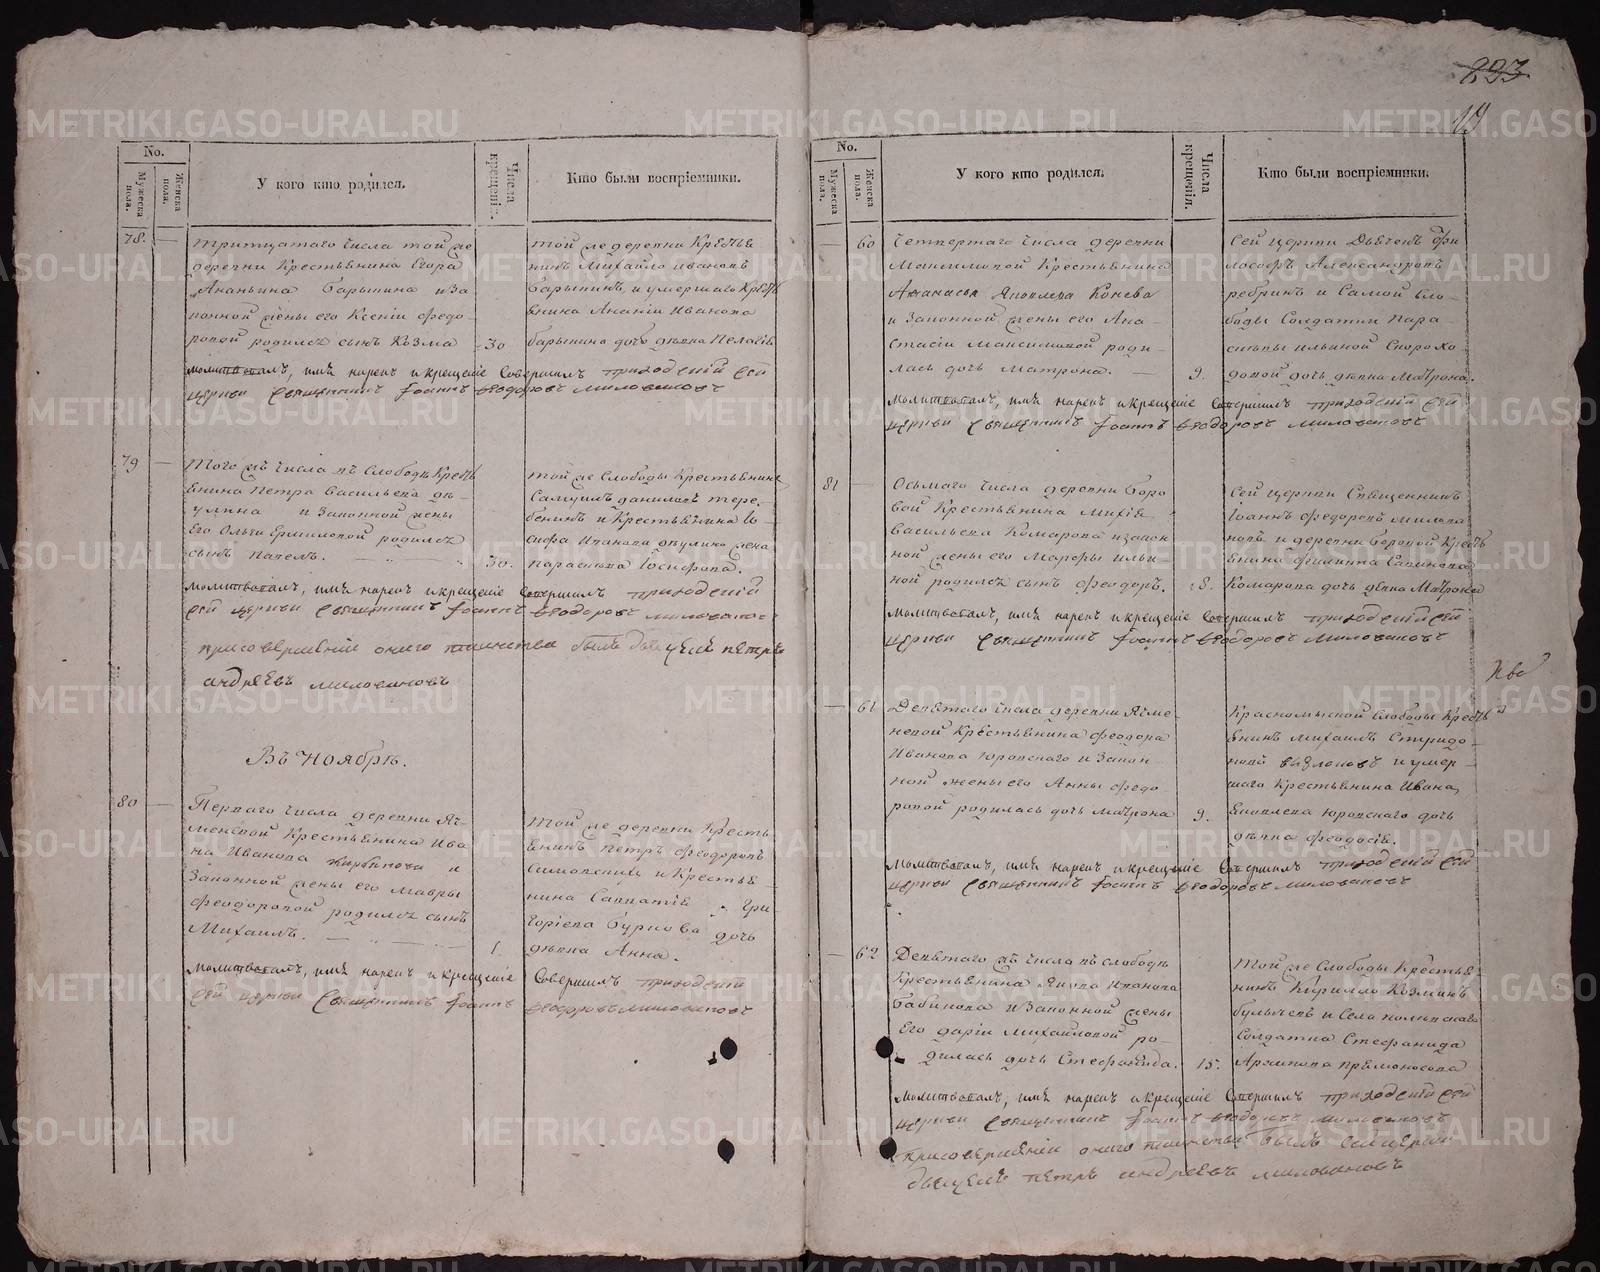 823
19
No.
Мужеска пола.
Женска пола.
У кого кто родился.
Числа крещенія.
Кто были воспріемники.
78.
тритцатаго числа той же
деревни Крестьянина Егора
Ананьина Барыпина и за
конной жены его Ксеніи Федо
ровой родился сынъ Козма
30
той же деревни Крестья
нинъ Михайло Ивановъ
Барыпинъ, и умершаго Кресть
янина Ананіи Иванова
барыпина дочь девка Пелагія
молитвовалъ, имя нарекъ и крещеніе Совершилъ приходскій сей
церкви Священникъ Іоаннъ Феодоровъ Миловановъ
79
Того жъ числа въ Слободе Кресть
янина Петра Васильева
и Законной жены
Его Ольги Ермиловой родился
сынъ Павелъ.
30.
той же Слободы Крестьянинъ
Самуилъ Даниловъ
и Крестьянина Іо-
сифа Иванова жена
Параскева Іосифова.
молитвовалъ, имя нарекъ и крещеніе Совершилъ приходскій
сей церкви Священникъ Іоаннъ Феодоровъ Миловановъ
при совершеніи онаго таинства былъ дьячекъ Петръ
андреевъ миловановъ
Въ Ноябрѣ.
80
Перваго числа деревни Яч-
меневой Крестьянина Ива
на Иванова и
Законной жены его Мавры
Феодоровой родился сынъ
Михаилъ.
1.
той же деревни Кресть
янинъ Петръ Феодоровъ
и Крестья-
нина Савватія Гри-
горіева Бурнова дочь
девка Анна.
молитвовалъ, имя нарекъ и крещеніе Совершилъ приходскій
сей церкви Священникъ Іоаннъ Феодоровъ Миловановъ
No.
Мужеска пола.
Женска пола.
У кого кто родился.
Числа крещенія.
Кто были воспріемники.
60
Четвертаго числа деревни
Максимовой Крестьянина
Афанасья Яковлева Конева
и Законной жены его Ана-
стасіи Максимовой роди-
лась дочь Матрона.
9.
Сей церкви Дьячекъ Фи
лософъ Александровъ
Ребринъ и Самой Сло-
боды Солдатки Пара-
скевы Ильиной Скорохо
довой дочь девка Матрона.
молитвовалъ, имя нарекъ и крещеніе Совершилъ приходскій сей
церкви Священникъ Іоаннъ Феодоровъ Миловановъ
81
Осьмаго числа деревни Боро
вой Крестьянина Михія
Васильева Комарова и закон
ной жены его Марфы Ильи-
ной родился сынъ Феодоръ.
8.
Сей церкви Священникъ
Іоаннъ Федоровъ Милова
новъ и деревни Боровой Кресть
янина Филиппа Савинова
Комарова дочь девка Матрона
молитвовалъ, имя нарекъ и крещеніе Совершилъ приходскій сей
церкви Священникъ Іоаннъ Феодоровъ Миловановъ
61
Девятаго числа деревни Ячме-
невой Крестьянина Феодора
Иванова Юровскаго и Закон-
ной жены его Анны Федо-
ровой родилась дочь Матрона
9.
Красномысской слободы Кресть
янинъ Михаилъ Спиридо-
новъ и умер-
шаго Крестьянина Ивана
Яковлева Юровскаго дочь
девка Феодосія.
молитвовалъ, имя нарекъ и крещеніе Совершилъ приходскій сей
церкви Священникъ Іоаннъ Феодоровъ Миловановъ
62
Девятаго жъ числа въ слободе
Крестьянина Якова Иванова
Бабинова и Законной жены
Его Даріи Михайловой ро-
дилась дочь Стефанида.
15.
Той же Слободы Крестья-
нинъ Кирилло Козминъ
Булычевъ и Села
Солдатка Стефанида
Архипова Прямоносова
молитвовалъ, имя нарекъ и крещеніе Совершилъ приходскій сей
церкви Священникъ Іоаннъ Феодоровъ Миловановъ
при совершеніи онаго таинства былъ сей церкви
дьячекъ петръ андреевъ миловановъ
METRIKI.GASO-URAL.RU